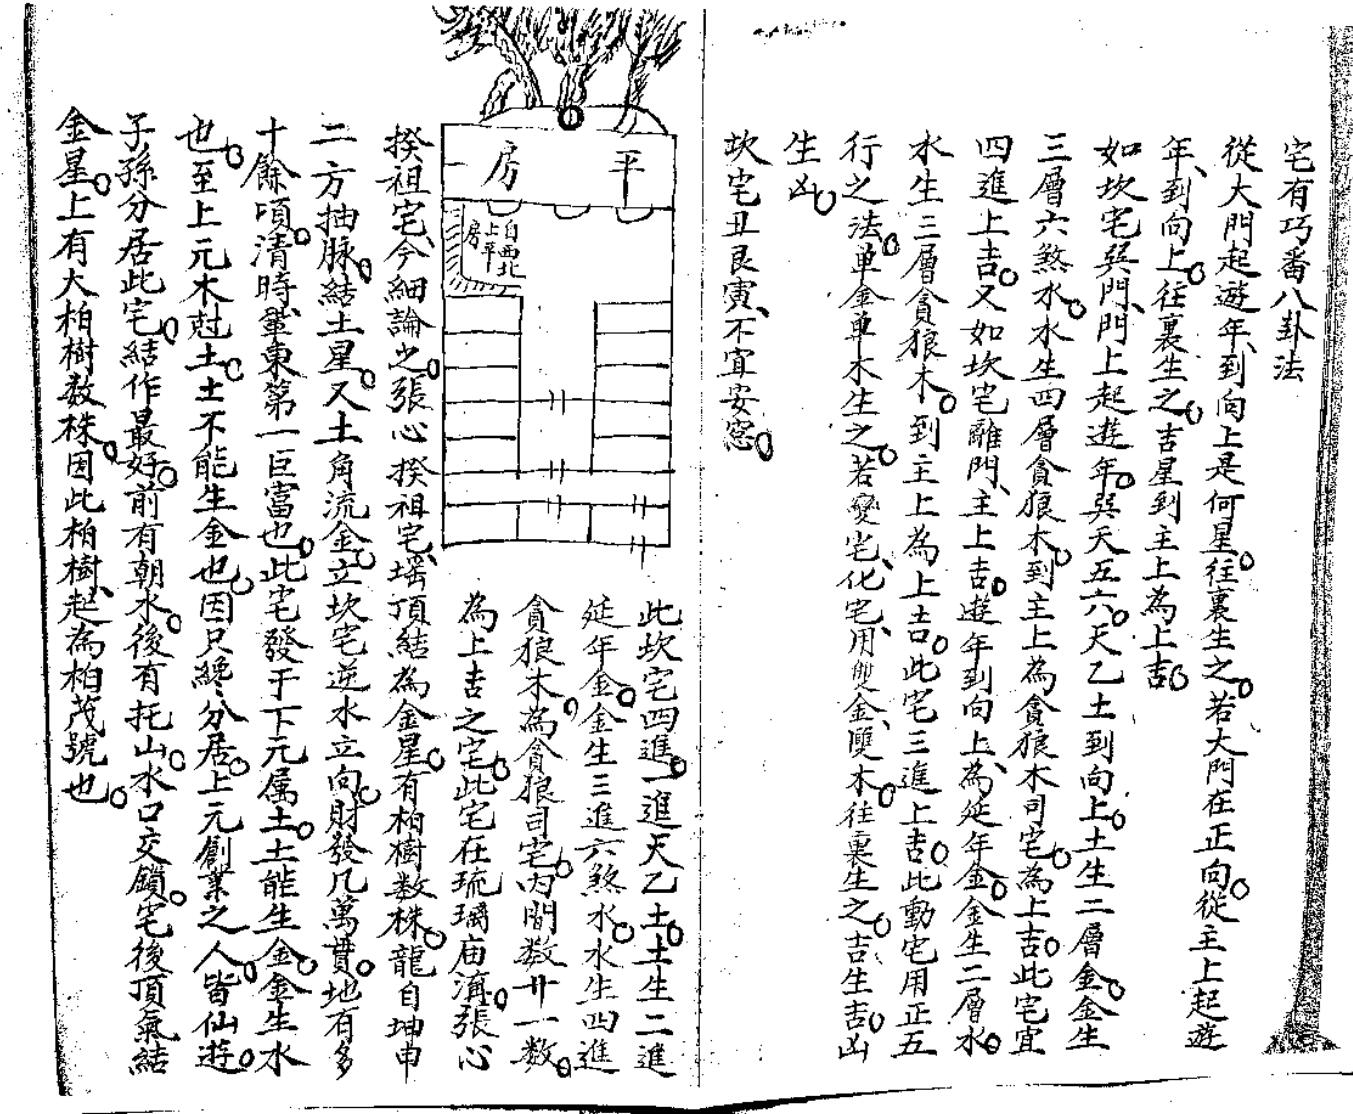 宅有巧番八卦法
從大門起遊年、到向上是何星。往裏生之。若大門在正向。從主上起遊
年、到向上。往裏生之。吉星到主上為上吉。
如坎宅巽門、門上起遊年。巽天五六。天乙土到向上。土生二層金。金生
三層六煞水。水生四層貪狼木。到主上為貪狼木司宅。為上吉。此宅宜
四進上吉。又如坎宅離門、主上吉。遊年到向上、為延年金。金生二層水。
水生三層貪狼木。到主上為上吉。此宅三進上吉。此動宅用正五
行之法。單金單木生之。若變宅、化宅、用雙金、雙木。往裏生之。吉生吉。凶
生凶。
坎宅丑艮寅、不宜安窓。
平房
自西北
上平
房
此坎宅四進。一進天乙土。土生二進
延年金。金生三進六煞水。水生四進
貪狼木。為貪狼司宅。內間数廿一数。
為上吉之宅。此宅在琉璃庙。張心
揆祖宅、今細論之。張心揆祖宅、塋頂結為金星。有柏樹数株。龍自坤申
二方抽脉。結土星。又土角流金。立坎宅逆水立向。財發凡萬貫。地有多
十餘頃。清時、蛩東第一巨富也。此宅發于下元属土。土能生金。金生水
也。至上元木尅土。土不能生金也。因只纔分居。上元創業之人。皆仙遊。
子孫分居此宅。結作最好。前有朝水。後有托山。水口交鎖。宅後頂氣結
金星。上有大柏樹数株。因此柏樹、起為柏茂號也。